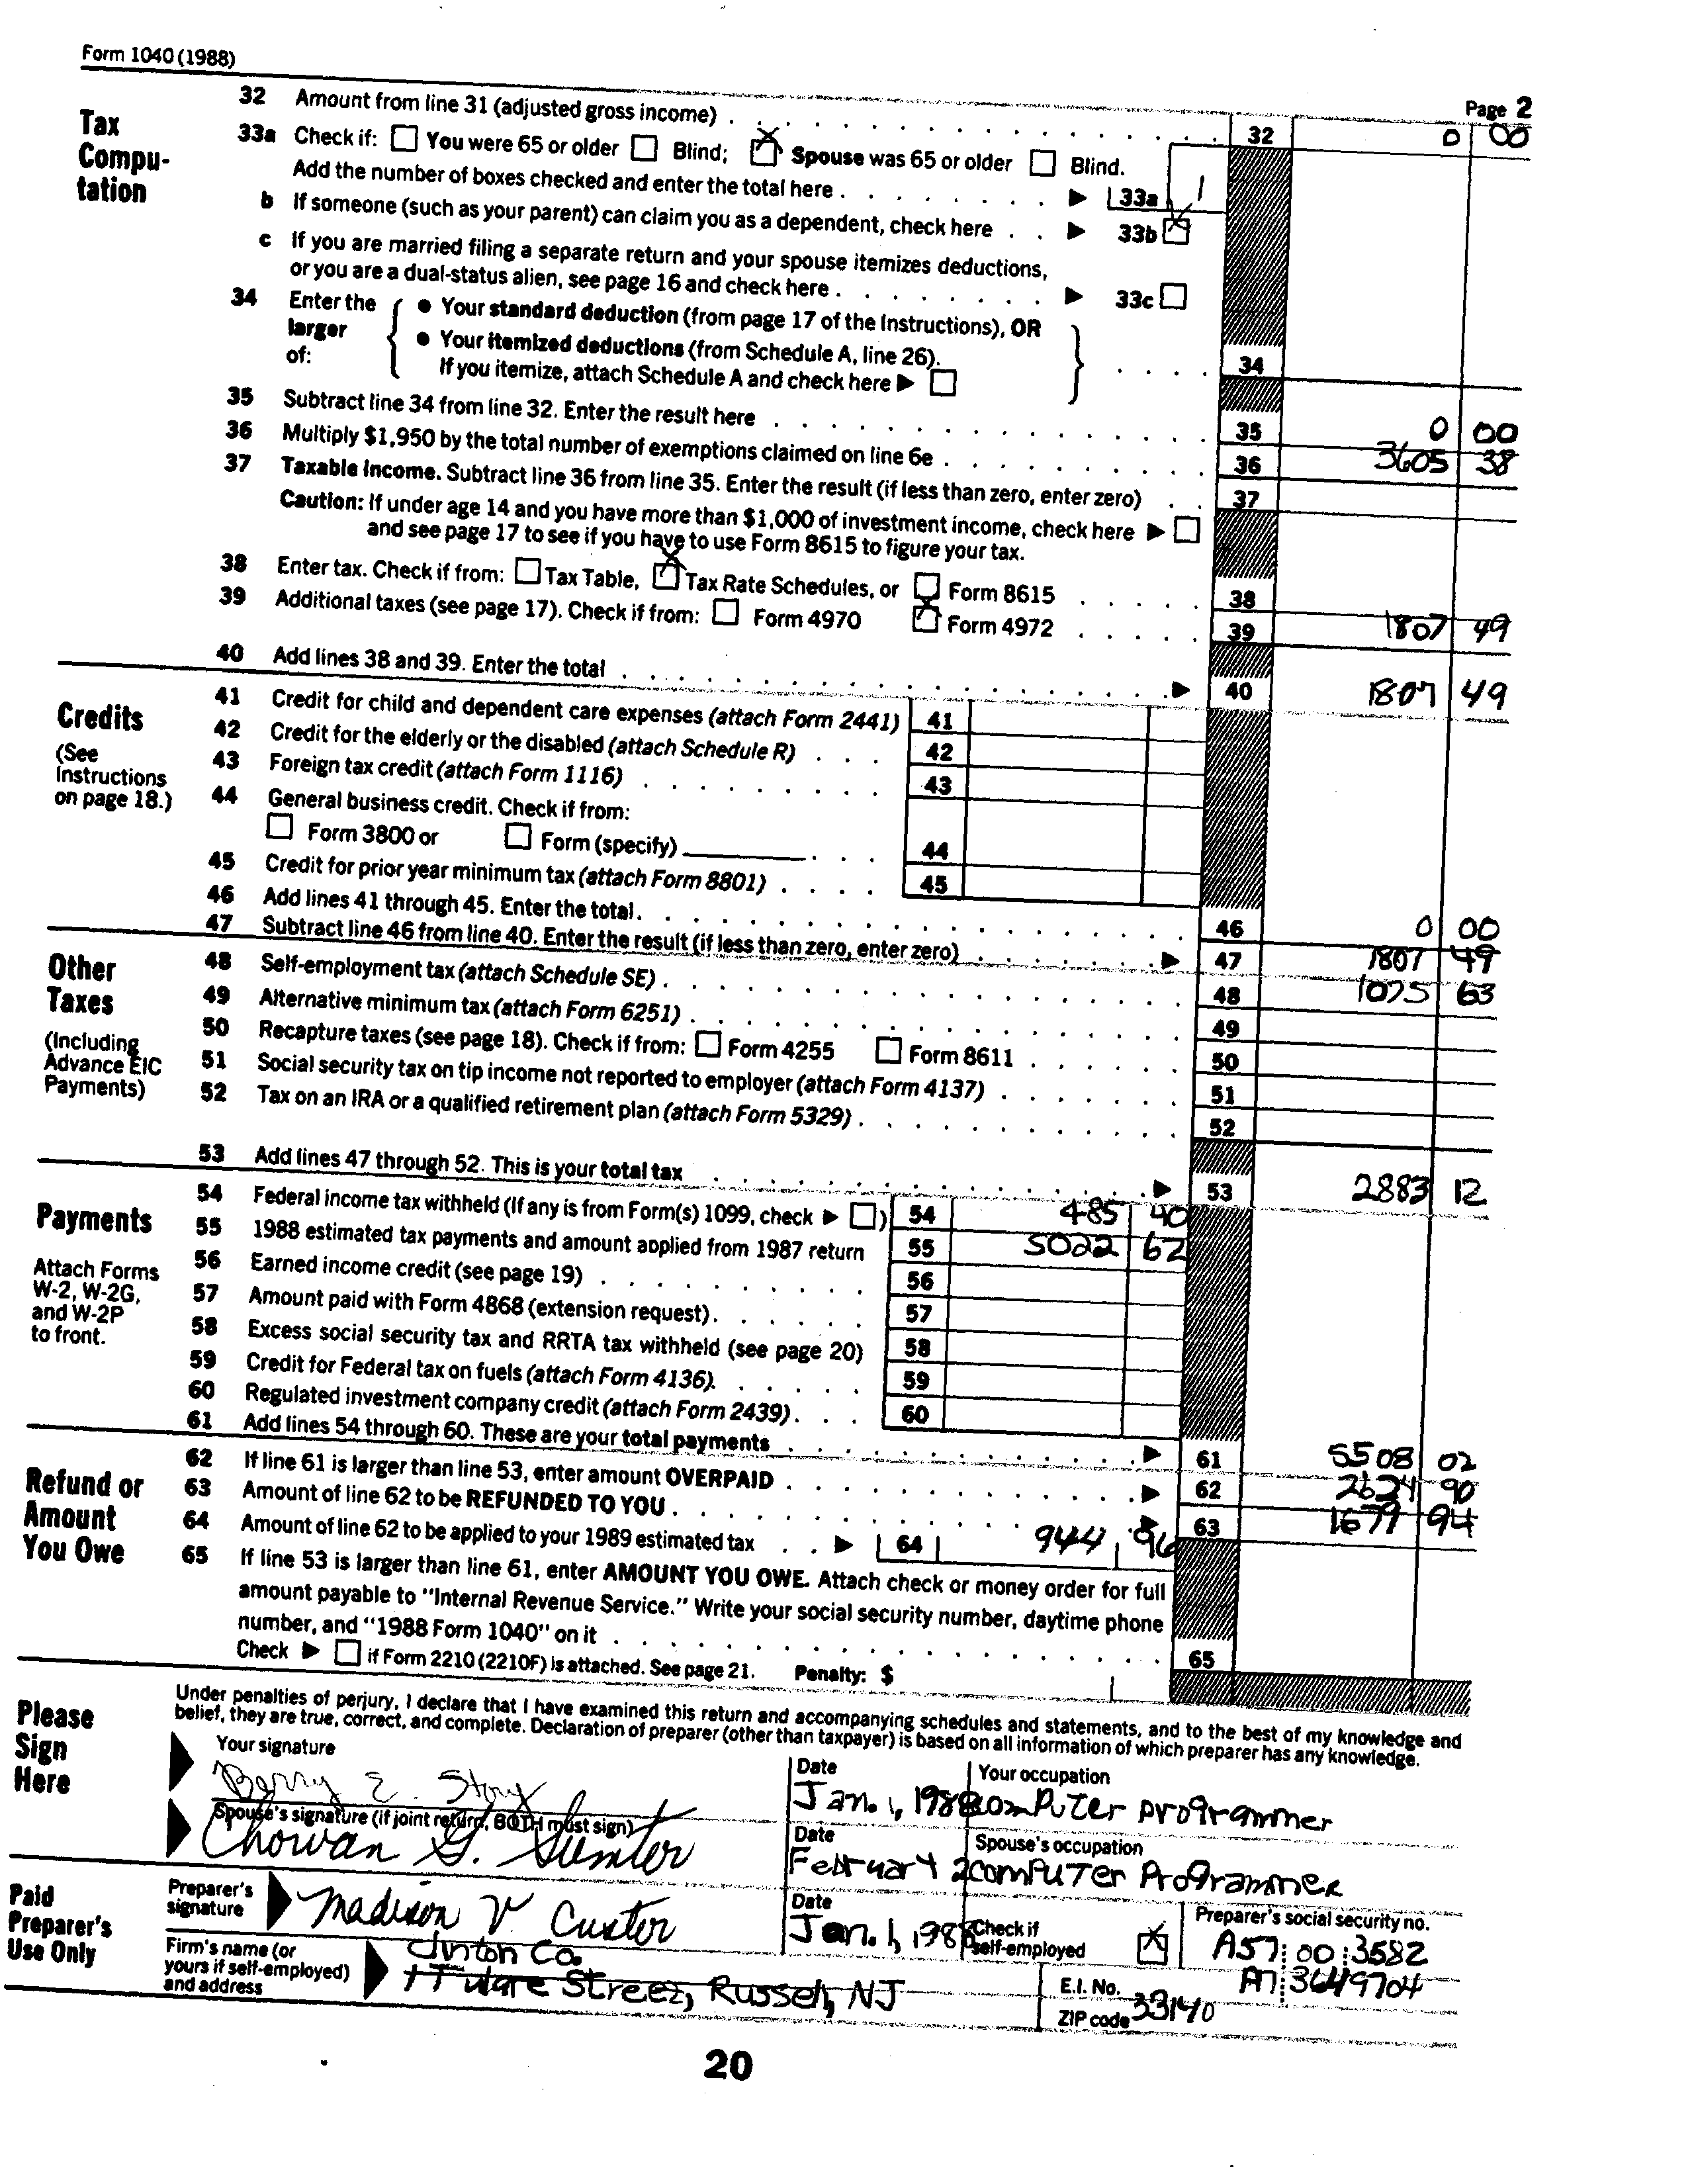 Form 1040 (1988)
Page 2
Tax Compu-tation
32 Amount from line 31 (adjusted gross income) . . . 32 0 00
33a Check if: You were 65 or older Blind; X Spouse was 65 or older Blind.
Add the number of boxes checked and enter the total here . . . ▶ 33a 1
b If someone (such as your parent) can claim you as a dependent, check here . . ▶ 33b X
c If you are married filing a separate return and your spouse itemizes deductions,
or you are a dual-status alien, see page 16 and check here . . . ▶ 33c
34 Enter the larger of: { • Your standard deduction (from page 17 of the Instructions), OR
• Your itemized deductions (from Schedule A, line 26).
If you itemize, attach Schedule A and check here ▶ } . . . . 34
35 Subtract line 34 from line 32. Enter the result here . . . 35 0 00
36 Multiply $1,950 by the total number of exemptions claimed on line 6e . . . 36 3605 38
37 Taxable income. Subtract line 36 from line 35. Enter the result (if less than zero, enter zero) . . 37
Caution: If under age 14 and you have more than $1,000 of investment income, check here ▶
and see page 17 to see if you have to use Form 8615 to figure your tax.
38 Enter tax. Check if from: Tax Table, X Tax Rate Schedules, or Form 8615 . . . 38
39 Additional taxes (see page 17). Check if from: Form 4970 X Form 4972 . . . 39 1807 49
40 Add lines 38 and 39. Enter the total . . . ▶ 40 1807 49
Credits
(See Instructions on page 18.)
41 Credit for child and dependent care expenses (attach Form 2441) 41
42 Credit for the elderly or the disabled (attach Schedule R) . . . 42
43 Foreign tax credit (attach Form 1116) . . . 43
44 General business credit. Check if from:
Form 3800 or Form (specify) . . . 44
45 Credit for prior year minimum tax (attach Form 8801) . . . . 45
46 Add lines 41 through 45. Enter the total . . . 46 0 00
47 Subtract line 46 from line 40. Enter the result (if less than zero, enter zero) . . . ▶ 47 1807 49
Other Taxes
(Including Advance EIC Payments)
48 Self-employment tax (attach Schedule SE) . . . 48 1075 63
49 Alternative minimum tax (attach Form 6251) . . . 49
50 Recapture taxes (see page 18). Check if from: Form 4255 Form 8611 . . . 50
51 Social security tax on tip income not reported to employer (attach Form 4137) . . . 51
52 Tax on an IRA or a qualified retirement plan (attach Form 5329) . . . 52
53 Add lines 47 through 52. This is your total tax . . . ▶ 53 2883 12
Payments
Attach Forms W-2, W-2G, and W-2P to front.
54 Federal income tax withheld (If any is from Form(s) 1099, check ▶ ) 54 485 40
55 1988 estimated tax payments and amount applied from 1987 return 55 5022 62
56 Earned income credit (see page 19) . . . 56
57 Amount paid with Form 4868 (extension request) . . . 57
58 Excess social security tax and RRTA tax withheld (see page 20) 58
59 Credit for Federal tax on fuels (attach Form 4136). . . . 59
60 Regulated investment company credit (attach Form 2439) . . . 60
61 Add lines 54 through 60. These are your total payments . . . ▶ 61 5508 02
Refund or Amount You Owe
62 If line 61 is larger than line 53, enter amount OVERPAID . . . ▶ 62 2624 90
63 Amount of line 62 to be REFUNDED TO YOU . . . ▶ 63 1679 94
64 Amount of line 62 to be applied to your 1989 estimated tax . . ▶ 64 944 96
65 If line 53 is larger than line 61, enter AMOUNT YOU OWE. Attach check or money order for full
amount payable to "Internal Revenue Service." Write your social security number, daytime phone
number, and "1988 Form 1040" on it . . . 65
Check ▶ if Form 2210 (2210F) is attached. See page 21. Penalty: $
Please Sign Here
Under penalties of perjury, I declare that I have examined this return and accompanying schedules and statements, and to the best of my knowledge and
belief, they are true, correct, and complete. Declaration of preparer (other than taxpayer) is based on all information of which preparer has any knowledge.
Your signature Date Your occupation
Barry E. Story Jan. 1, 1988 computer programmer
Spouse's signature (if joint return, BOTH must sign) Date Spouse's occupation
Chowan G. Sumter February 2 computer programmer
Paid Preparer's Use Only
Preparer's signature Date Check if self-employed X Preparer's social security no.
Madison V. Custer Jan. 1, 1988 A57 00 3582
Firm's name (or yours if self-employed) and address
Clinton Co.
1 Tulare Street, Russell, NJ
E.I. No. A7 3649704
ZIP code 33140
20